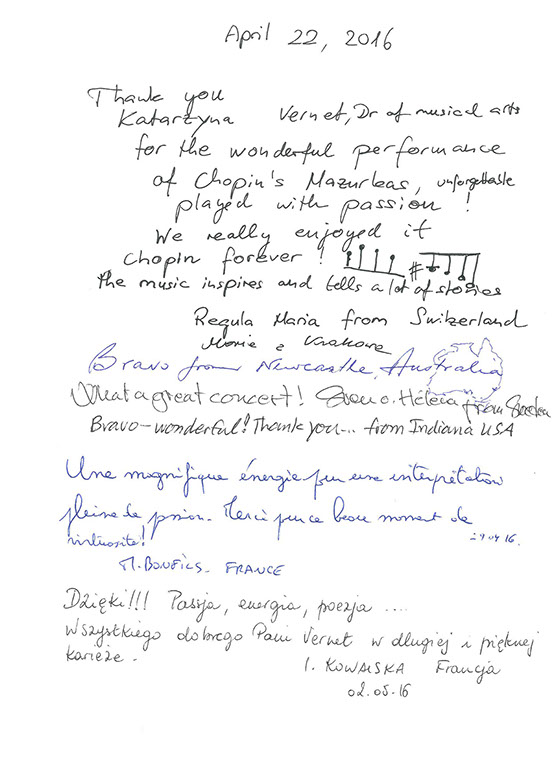 April 22, 2016
Thank you
Katarzyna Vernet, Dr of musical arts
for the wonderful performance
of Chopin's Mazurkas, unforgettable
played with passion!
We really enjoyed it
Chopin forever!
the music inspires and tells a lot of stories
Regula Maria from Switzerland
Bravo from Newcastle, Australia
What a great concert! Helena from
Bravo - wonderful! Thank you... from Indiana USA
Une magnifique énergie pour une interprétation
pleine de passion. Merci pour ce beau moment de
virtuosité! 29 04 16.
M. BONFILS - FRANCE
Dzięki!!! Pasja, energia, poezja ....
Wszystkiego dobrego Pani Vernet w długiej i pięknej
karieże.
I. KOWALSKA Francja
02.05.16